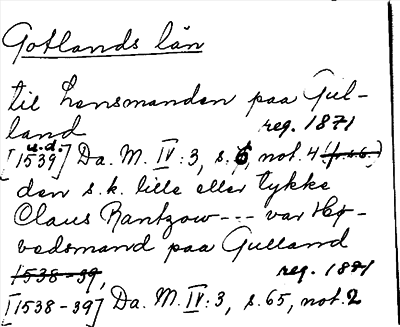 Gotlands län
til Lensmanden paa Gul-
land reg. 1871
u.d.
[1539] Da. M. IV: 3, s. 6, not. 4 (fr. s. 6.)
den s.k. lille eller tykke
Claus Rantzow --- var Hø-
vedsmand paa Gulland
1538-39, reg. 1881
[1538-39] Da. M. IV: 3, s. 65, not. 2